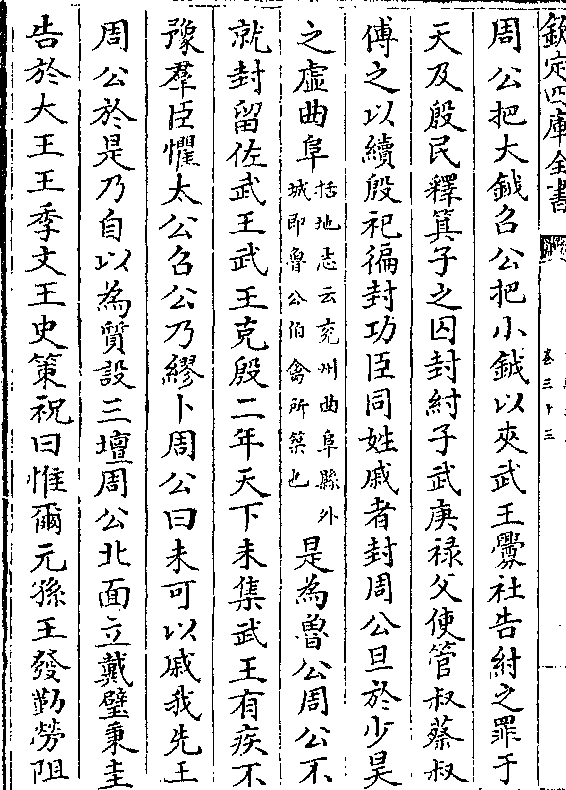 欽定四庫全書
卷三十三
周公把大鉞召公把小鉞以夾武王釁社告紂之罪于
天及殷民釋箕子之囚封紂子武庚祿父使管叔蔡叔
傅之以續殷祀徧封功臣同姓戚者封周公旦於少昊
之虛曲阜括地志云兖州曲阜縣外城即魯公伯禽所築也是為魯公周公不
就封留佐武王武王克殷二年天下未集武王有疾不
豫羣臣懼太公召公乃繆卜周公曰未可以戚我先王
周公於是乃自以為質設三壇周公北面立戴璧秉圭
告於大王王季文王史策祝曰惟爾元孫王發勤勞阻